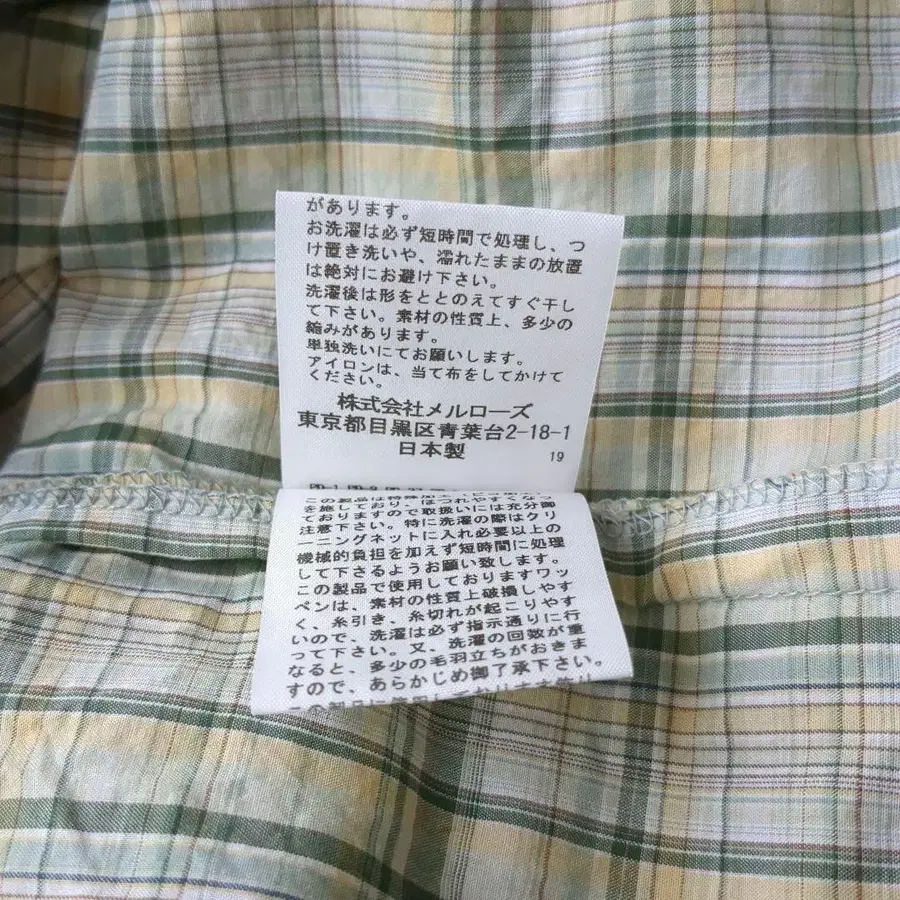 があります。
お洗濯は必ず短時間で処理し、つ
け置き洗いや、濡れたままの放置
は絶対にお避け下さい。
洗濯後は形をととのえてすぐ干し
て下さい。素材の性質上、多少の
縮みがあります。
単独洗いにてお願いします。
アイロンは、当て布をしてかけて
ください。
株式会社メルローズ
東京都目黒区青葉台2-18-1
日本製
19
この製品は特殊加工
を施しており、ほつれやすくなっ
ておりますので取扱いには充分御
注意下さい。特に洗濯の際はクリ
ーニングネットに入れ必要以上の
機械的負担を加えず短時間に処理
して下さるようお願い致します。
この製品で使用しておりますワッ
ペンは、素材の性質上破損しやす
く、糸引き、糸切れが起こりやす
いので、洗濯は必ず指示通りに行
って下さい。又、洗濯の回数が重
なると、多少の毛羽立ちがおきま
すので、あらかじめ御了承下さい。
この製品に使用しております